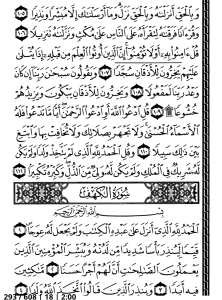 وَبِٱلْحَقِّ أَنزَلْنَٰهُ وَبِٱلْحَقِّ نَزَلَ وَمَآ أَرْسَلْنَٰكَ إِلَّا مُبَشِّرًا وَنَذِيرًا ١٠٥
وَقُرْءَانًا فَرَقْنَٰهُ لِتَقْرَأَهُۥ عَلَى ٱلنَّاسِ عَلَىٰ مُكْثٍ وَنَزَّلْنَٰهُ تَنزِيلًا ١٠٦
قُلْ ءَامِنُوا۟ بِهِۦٓ أَوْ لَا تُؤْمِنُوٓا۟ إِنَّ ٱلَّذِينَ أُوتُوا۟ ٱلْعِلْمَ مِن قَبْلِهِۦٓ إِذَا يُتْلَىٰ
عَلَيْهِمْ يَخِرُّونَ لِلْأَذْقَانِ سُجَّدًا ١٠٧ وَيَقُولُونَ سُبْحَٰنَ رَبِّنَآ إِن كَانَ
وَعْدُ رَبِّنَا لَمَفْعُولًا ١٠٨ وَيَخِرُّونَ لِلْأَذْقَانِ يَبْكُونَ وَيَزِيدُهُمْ
خُشُوعًا ١٠٩ قُلِ ٱدْعُوا۟ ٱللَّهَ أَوِ ٱدْعُوا۟ ٱلرَّحْمَٰنَ أَيًّا مَّا تَدْعُوا۟ فَلَهُ
ٱلْأَسْمَآءُ ٱلْحُسْنَىٰ وَلَا تَجْهَرْ بِصَلَاتِكَ وَلَا تُخَافِتْ بِهَا وَٱبْتَغِ
بَيْنَ ذَٰلِكَ سَبِيلًا ١١٠ وَقُلِ ٱلْحَمْدُ لِلَّهِ ٱلَّذِى لَمْ يَتَّخِذْ وَلَدًا وَلَمْ يَكُن
لَّهُۥ شَرِيكٌ فِى ٱلْمُلْكِ وَلَمْ يَكُن لَّهُۥ وَلِىٌّ مِّنَ ٱلذُّلِّ وَكَبِّرْهُ تَكْبِيرًۢا ١١١
سُورَةُ ٱلْكَهْفِ
بِسْمِ ٱللَّهِ ٱلرَّحْمَٰنِ ٱلرَّحِيمِ
ٱلْحَمْدُ لِلَّهِ ٱلَّذِىٓ أَنزَلَ عَلَىٰ عَبْدِهِ ٱلْكِتَٰبَ وَلَمْ يَجْعَل لَّهُۥ عِوَجَا ١
قَيِّمًا لِّيُنذِرَ بَأْسًا شَدِيدًا مِّن لَّدُنْهُ وَيُبَشِّرَ ٱلْمُؤْمِنِينَ ٱلَّذِينَ
يَعْمَلُونَ ٱلصَّٰلِحَٰتِ أَنَّ لَهُمْ أَجْرًا حَسَنًا ٢ مَّٰكِثِينَ
فِيهِ أَبَدًا ٣ وَيُنذِرَ ٱلَّذِينَ قَالُوا۟ ٱتَّخَذَ ٱللَّهُ وَلَدًا ٤
293 / 608 | 18 | 2:00